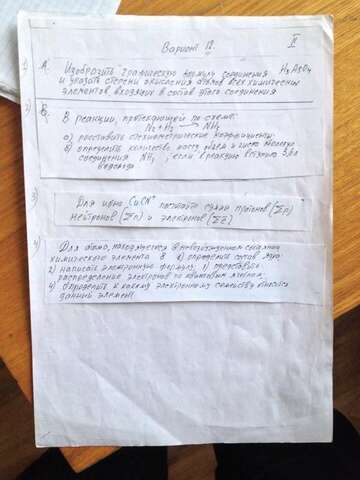 Вариант 12. II
1) А. Изобразить графическую формулу соединения H3AsO4
и указать степени окисления атомов всех химических
элементов, входящих в состав этого соединения
2) Б. В реакции, протекающей по схеме:
N2 + H2 → NH3
а) расставить стехиометрические коэффициенты
б) определить количество массу объём и число молекул
соединения NH3, если в реакцию вступило
водорода
3) Для иона CuCN+ посчитать сумму протонов (Σp)
нейтронов (Σn) и электронов (Σē)
4) Для атома, находящегося в невозбужденном состоянии
химического элемента В 1) определить состав ядра
2) написать электронную формулу, 3) представить
распределение электронов по квантовым ячейкам
4) определить к какому электронному семейству относится
данный элемент